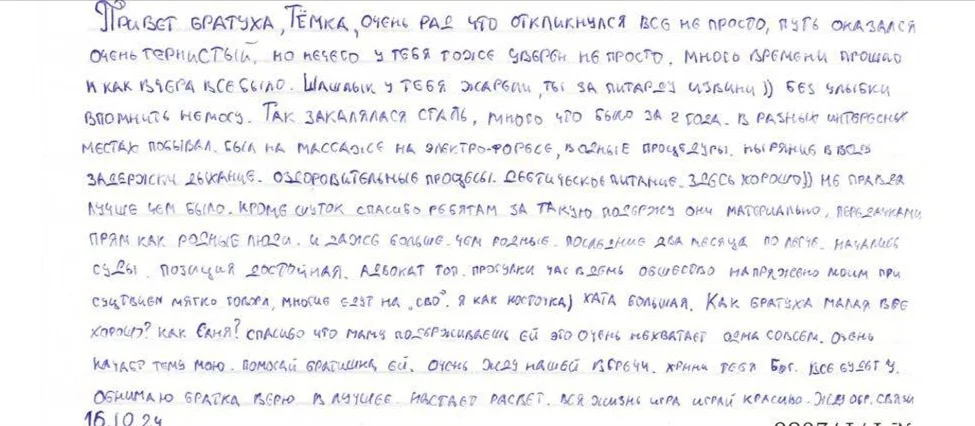 Привет братуха, Тёмка, очень рад что откликнулся все не просто, путь оказался
очень тернистый, но нечего у тебя тоже уверен не просто. Много времени прошло
и как вчера все было. Шашлык у тебя жарели, ты за питарду извини)) без улыбки
вспомнить не могу. Так закалялася сталь, много что было за 2 года. В разных интересных
местах побывал. Был на массаже на электро-форесе, водные процедуры. Ныряние в воду
задержки дыхание. Оздоровительные процесы. Деетическое питание. Здесь хорошо)) не правда
лучше чем было. Кроме шуток спасибо ребятам за такую подержу они материально, передачками
прям как родные люди. И даже больше чем родные. Последние два месяца по легче. Начались
суды. Позиция достойная. Адвокат топ. Прогулки час в день общество напряжено моим при
сутствием мягко говоря, многие едут на "СВО". Я как косточка) Хата большая. Как братуха малая все
хорошо? Как Саня? Спасибо что маму подерживаешь ей это очень нехватает одма совсем. Очень
качает тему мою. Помогай братишка ей. Очень жду нашей встречи. Храни тебя Бог. Все будет у.
Обнимаю братка верю в лучшее. Настает расвет. Вся жизнь игра играй красиво. Жду обр. связи
16.10.24